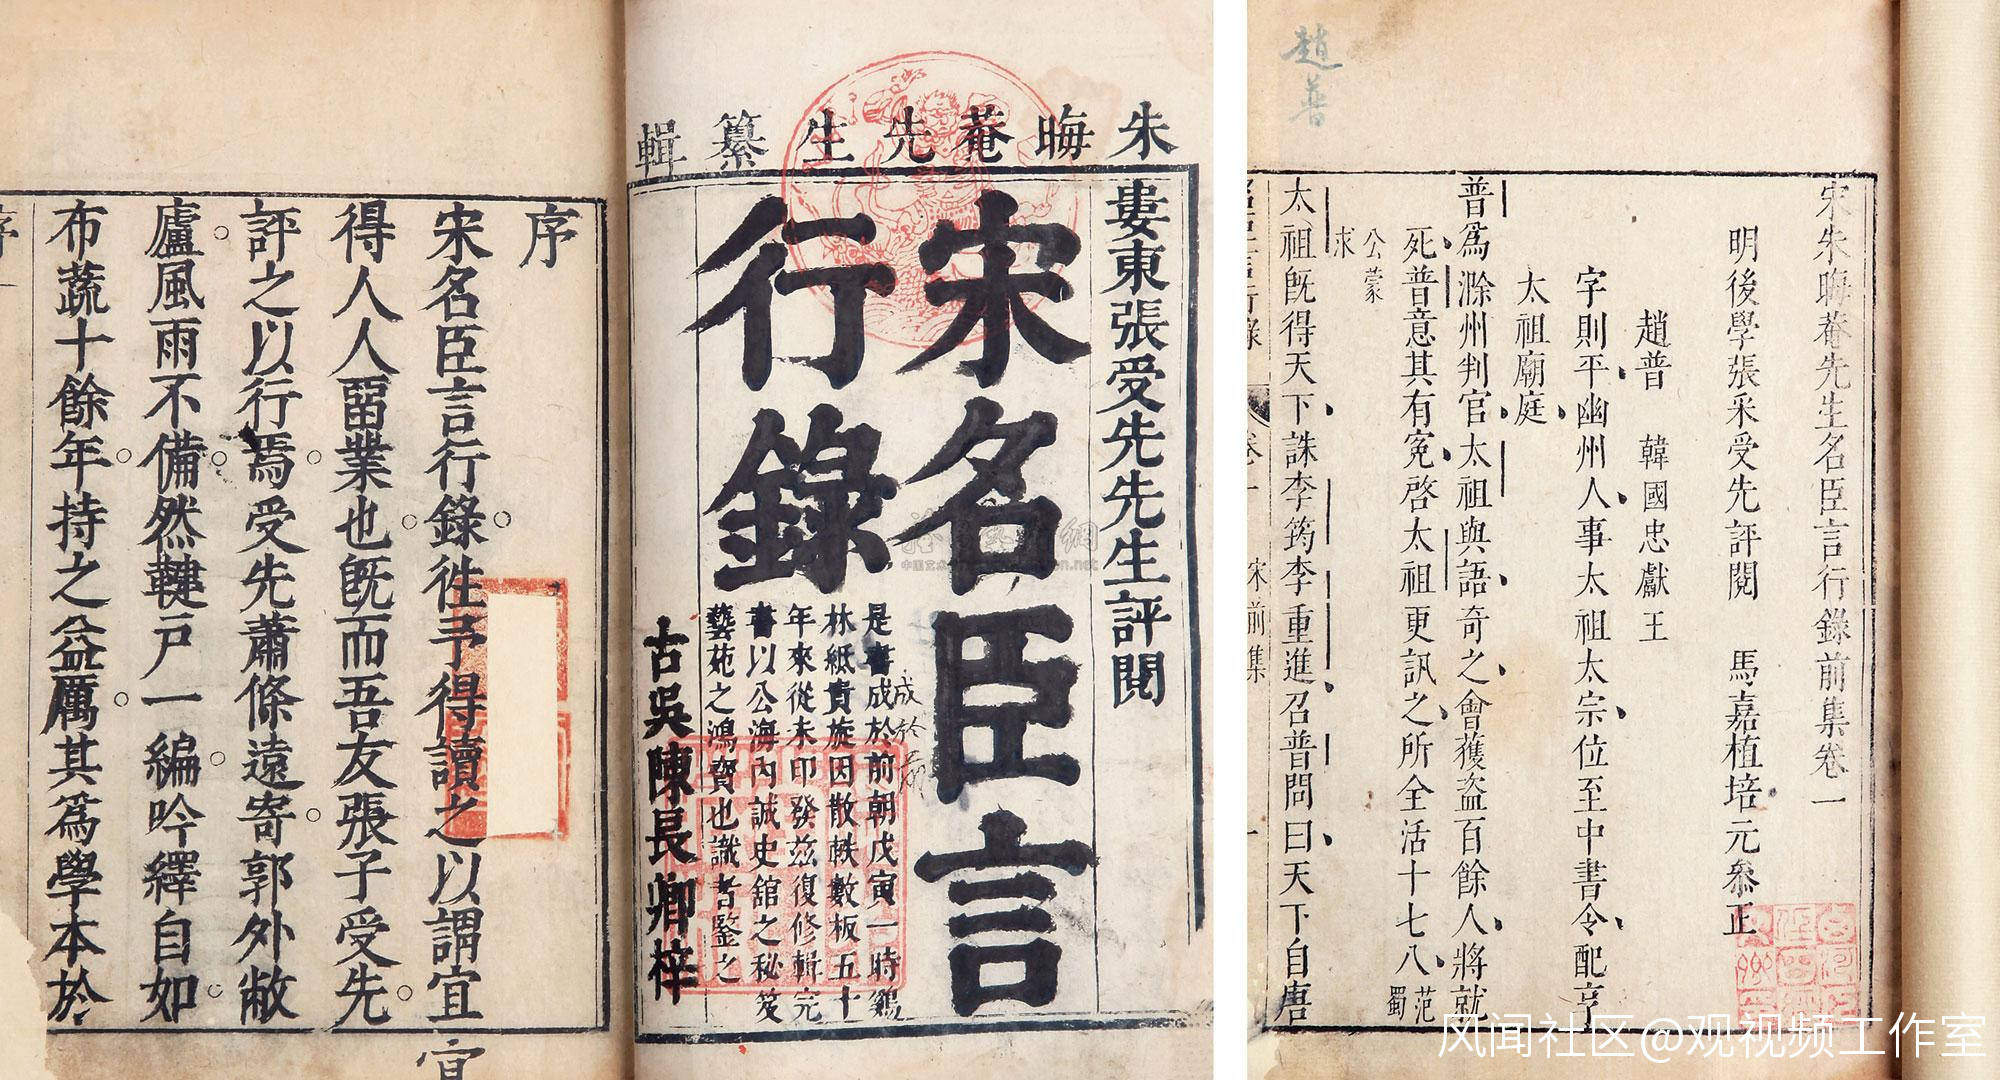 朱晦菴先生纂輯
婁東張受先先生評閱
宋名臣言
行錄
是書成於前朝戊寅一時鷄
林紙貴旋因散軼數板五十
年來從未印發茲復修輯完
書以公海內誠史舘之秘笈
藝苑之鴻寶也識者鑒之
成於前
古吳陳長卿梓
序
宋名臣言行錄徃予得讀之以謂宜
宜
得人人畱業也旣而吾友張子受先
評之以行焉受先蕭條遠寄郭外敝
廬風雨不備然鍵戸一編吟繹自如
布蔬十餘年持之益厲其爲學本於
序
趙普
宋朱晦菴先生名臣言行錄前集卷一
明後學張采受先評閱 馬嘉植培元叅正
趙普 韓國忠獻王
字則平幽州人事太祖太宗位至中書令配享
太祖廟庭
普爲滁州判官太祖與語奇之會獲盜百餘人將就
死普意其有寃啓太祖更訊之所全活十七八 范
蜀
公蒙
求
太祖旣得天下誅李筠李重進召普問曰天下自唐
卷一 宋前集 一
中国艺术
风闻社区@观视频工作室